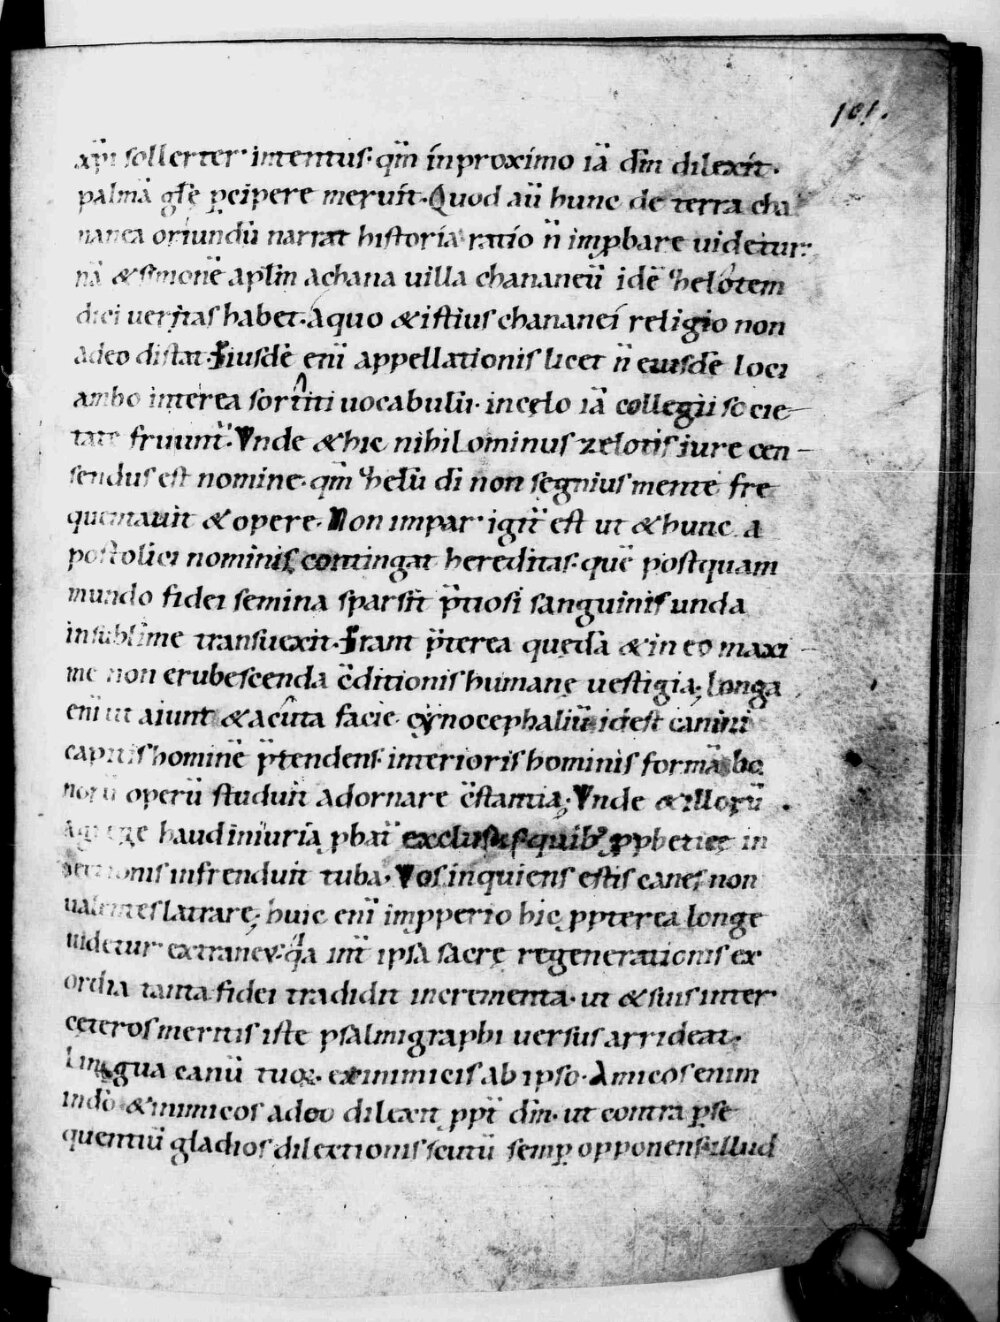 101.
xp̄i sollerter intentus· qm̄ in proximo iā dm̄ dilexit·
palmā glę̄ p̱cipere meruit· Quod aū hunc de terra cha
nanea oriundū narrat historia ratio n̄ improbare uidetur;
nā & simonē aplm̄ a chana uilla chananeū idē zhelotem
dici ueritas habet· a quo & istius chananei religio non
adeo distat· Eiusdē eni̅ appellationis licet n̄ eiusdē loci
ambo interea sortiti uocabulū· in cęlo iā collegii socie
tate fruunt̄· Vnde & hic nihilominus zelotis iure cen
sendus est nomine· qm̄ zhelū di non segnius mente fre
quentauit & opere· Non impar igit̄ est ut & hunc a
postolici nominis contingat hereditas· quē postquam
mundo fidei semina sparsit p̄tiosi sanguinis unda
in sublime transuexit· Erant p̄terea quędā & in eo maxi
me non erubescenda c̄ditionis humanę uestigia; longa
eni̅ ut aiunt & acuta facie cynocephaliū idest canini
capitis hominē p̄tendens· interioris hominis formā bo
norū operū studuit adornare c̄stantia; Vnde & illorū
a grege haud iniuria ꝓbat̄ exclusus· quib; ꝓphetice in
infrendunt tuba· Vos inquiens estis canes non
ualentes latrare; huic eni̅ improperio hic ꝓpterea longe
uidetur extraneus· qa int̄ ipsa sacrę regenerationis ex
ordia tanta fidei tradidit incrementa· ut & suis inter
ceteros meritis iste psalmigraphi uersus arrideat·
Lingua canū tuoꝝ ex inimicis ab ipso· Amicos enim
in dō & inimicos adeo dilexit ꝓpt̄ dm̄· ut contra p̱se
quentiū gladios dilectionis scutū semp̱ opponens illud